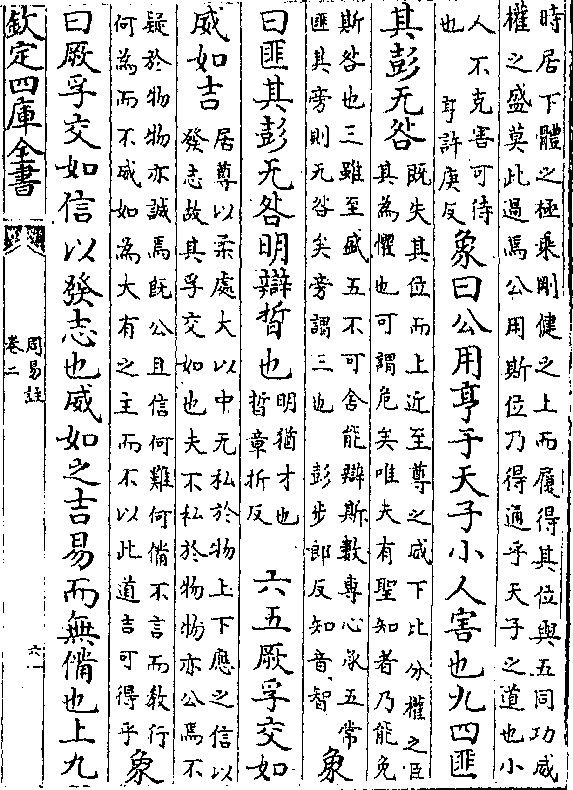 時居下體之極乗剛健之上而履得其位與五同功威
權之盛莫此過焉公用斯位乃得通乎天子之道也小
人不克害可待
也　亨許庚反
象曰公用亨于天子小人害也九四匪
其彭无咎
既失其位而上近至尊之威下比分權之臣
其為懼也可謂危矣唯夫有聖知者乃能免
斯咎也三雖至盛五不可舍能辯斯數專心承五常
匪其旁則无咎矣旁謂三也　彭步郎反知音智
象
曰匪其彭无咎明辯晢也
明猶才也
晢章折反
六五厥孚交如
威如吉
居尊以柔處大以中无私於物上下應之信以
發志故其孚交如也夫不私於物物亦公焉不
疑於物物亦誠焉既公且信何難何備不言而教行
何為而不威如為大有之主而不以此道吉可得乎
象
曰厥孚交如信以發志也威如之吉易而無備也上九
欽定四庫全書
周易註
卷二
六